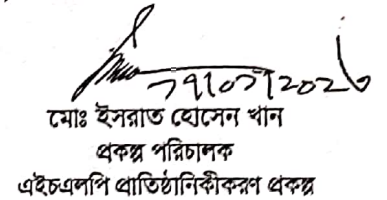 মোঃ ইসরাত হোসেন খান
প্রকল্প পরিচালক
এইচএলপি প্রাতিষ্ঠানিকীকরণ প্রকল্প